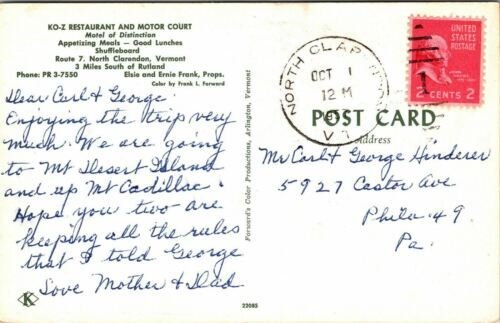 KO-Z RESTAURANT AND MOTOR COURT
Motel of Distinction
Appetizing Meals — Good Lunches
Shuffleboard
Route 7. North Clarendon, Vermont
3 Miles South of Rutland
Phone: PR 3-7550 Elsie and Ernie Frank, Props.
Color by Frank L. Forward
Dear Carl & George
Enjoying the trip very
much. We are going
to Mt Desert Island
and up Mt Cadillac
Hope you two are
keeping all the rules
that I told George
Love Mother & Dad
K
22085
Forward's Color Productions, Arlington, Vermont
NORTH CLAR
OCT 1
12 M
VT
UNITED STATES
POSTAGE
2 CENTS 2
POST CARD
Address
Mr Carl & George Hinderer
5927 Castor Ave
Phila 49
Pa.